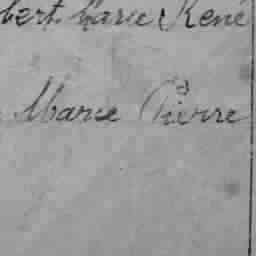 bert Marie René
Marie Pierre